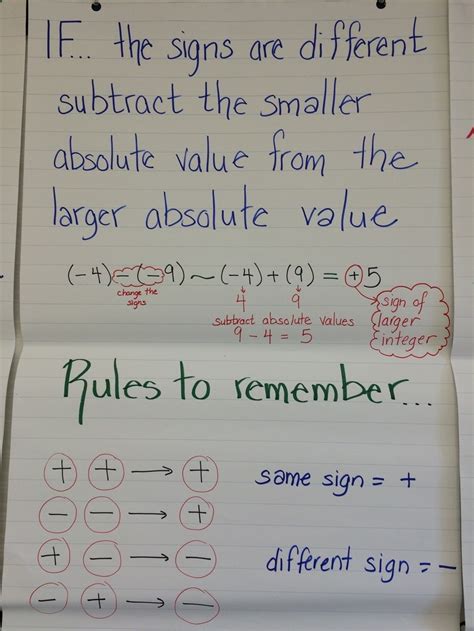 IF... the signs are different
subtract the smaller
absolute value from the
larger absolute value
(-4) - (-9) ~ (-4) + (9) = +5
change the
signs
4 9
subtract absolute values
9 - 4 = 5
sign of
larger
integer
Rules to remember...
+ + → +
- - → +
+ - → -
- + → -
same sign = +
different sign = -